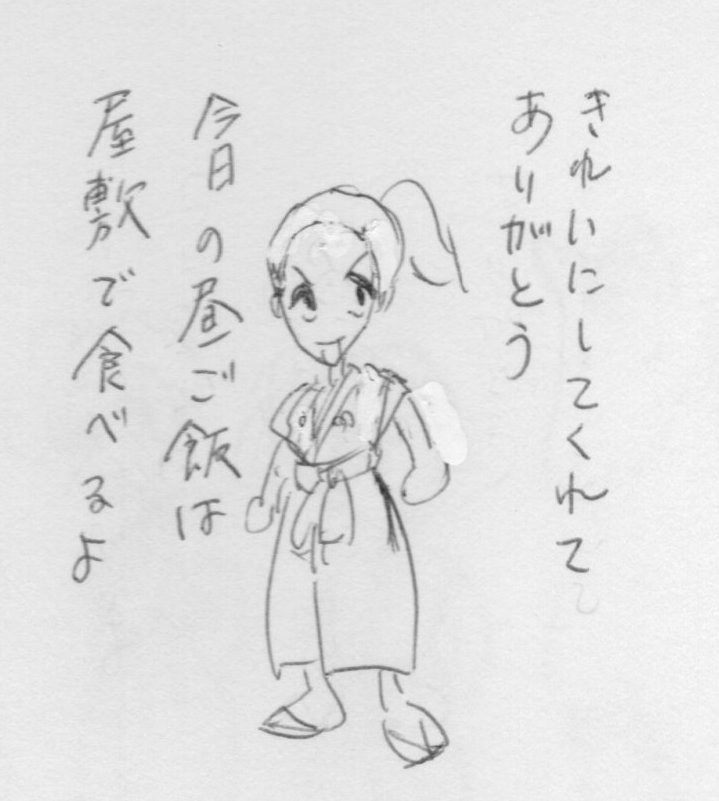 きれいにしてくれて
ありがとう
今日の昼ご飯は
屋敷で食べるよ